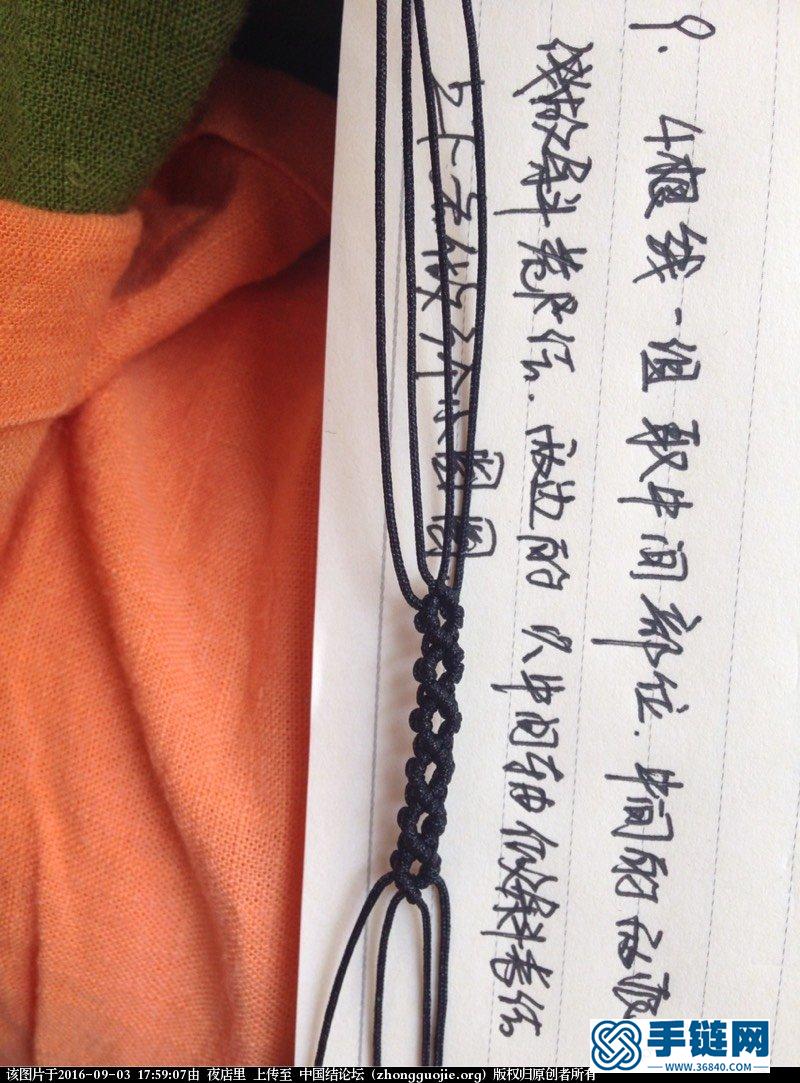 9. 4根线一组 取中间部位. 中间的两根
线做斜卷结. 两边的以中间为轴做斜卷结
5个 小圆圈
手链网
WWW.36840.COM
该图片于2016-09-03 17:59:07由 夜店里 上传至 中国结论坛 (zhongguojie.org) 版权归原创者所有